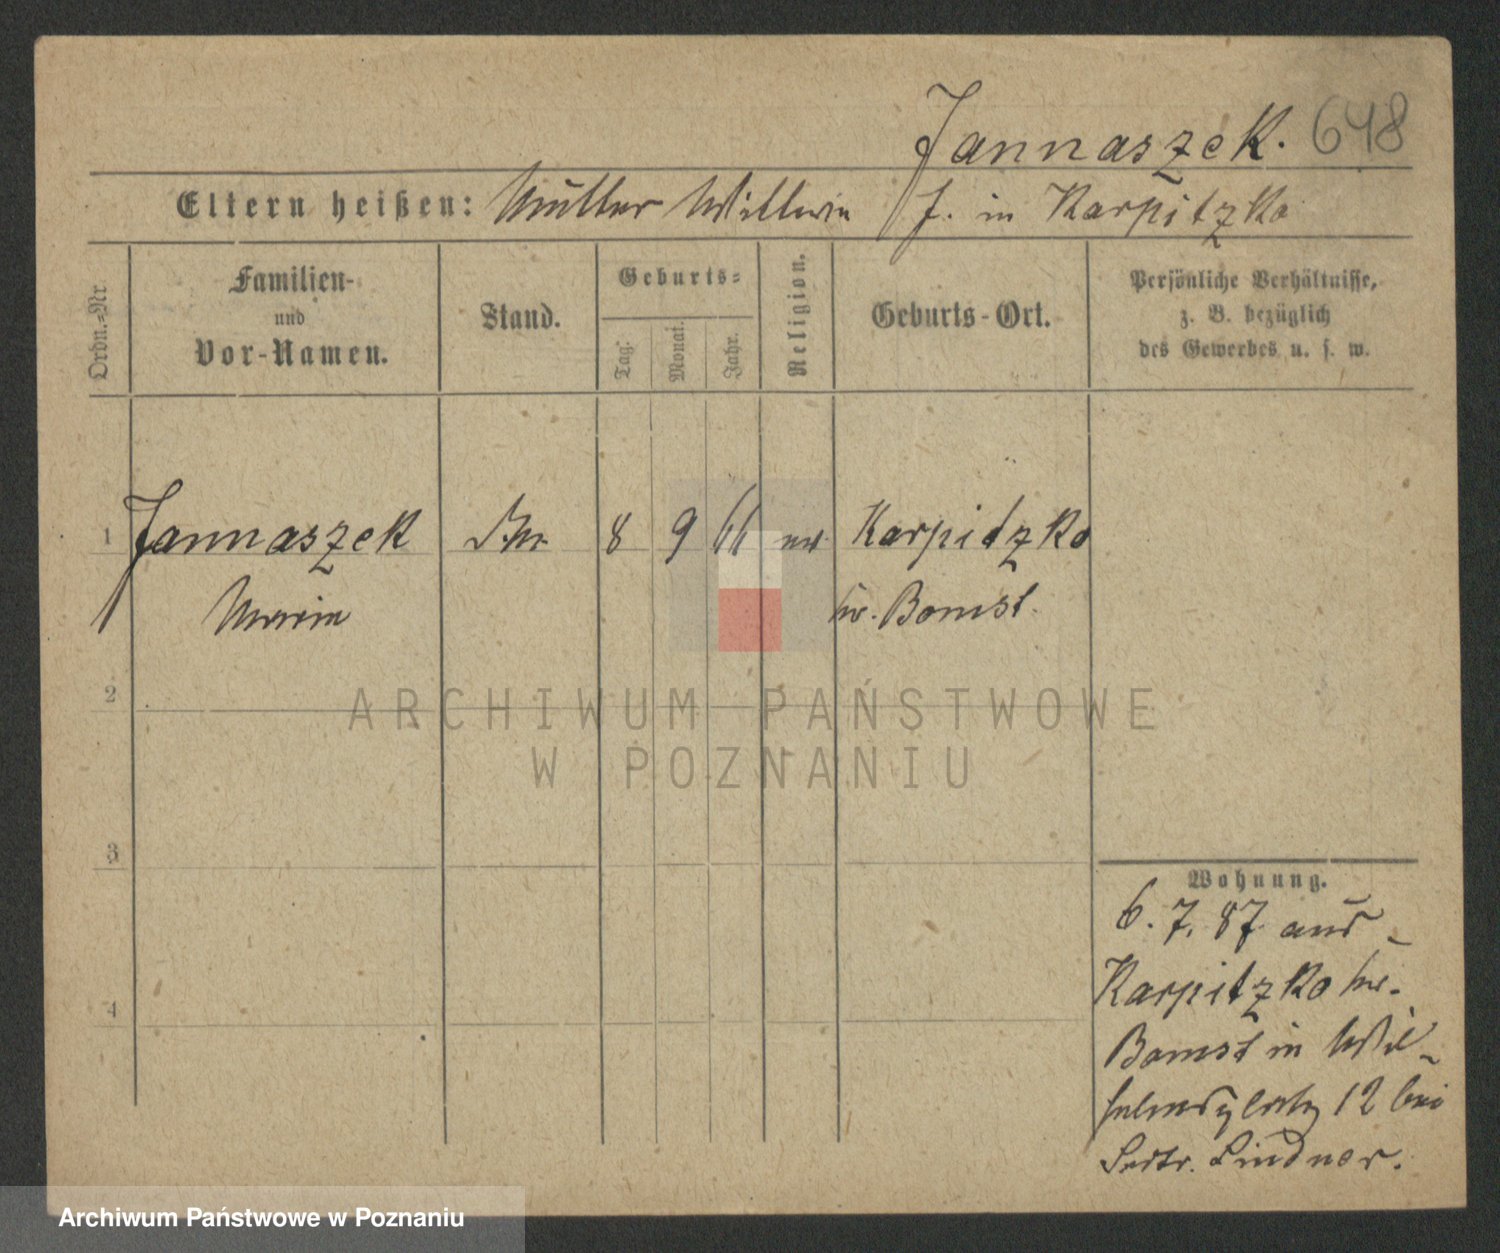 Jannaszek. 648
Eltern heißen: Mutter Wittwe J. in Karpitzko
Ordn.-Nr
Familien-
und
Vor-Namen.
Stand.
Geburts-
Tag.
Monat.
Jahr.
Religion.
Geburts-Ort.
Persönliche Verhältnisse,
z. B. bezüglich
des Gewerbes u. s. w.
1 Jannaszek 8 9 66 Karpitzko
Maria Bomst.
2
ARCHIWUM PAŃSTWOWE
W POZNANIU
3
Wohnung.
6. 7. 87 aus
Karpitzko
4
Bomst in Wil-
helmsplatz 12 bei
Lindner.
Archiwum Państwowe w Poznaniu